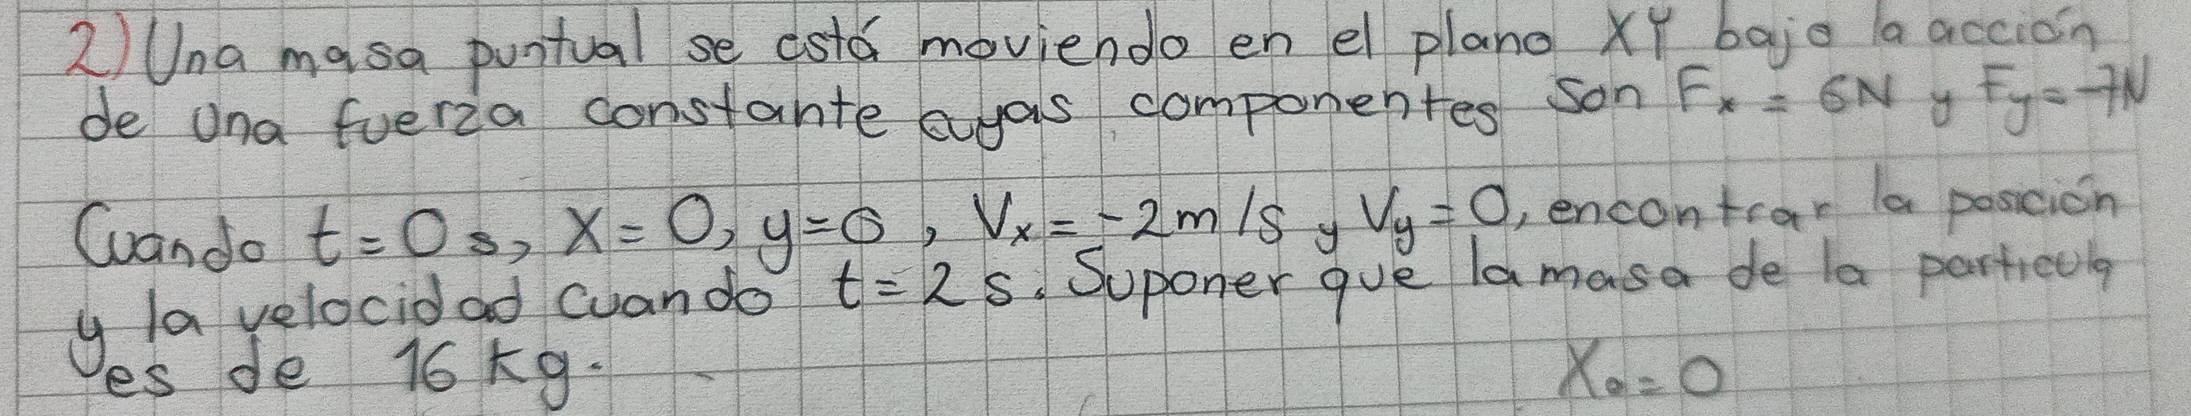 2) Una masa puntual se está moviendo en el plano XY bajo la acción
de una fuerza constante cuyas componentes son Fx = 6N y Fy = -7N
Cuando t = 0 s, X = 0, y = 0, Vx = -2m/s y Vy = 0, encontrar la posición
y la velocidad cuando t = 2 s. Suponer que la masa de la particula
es de 16 kg.
X₀ = 0